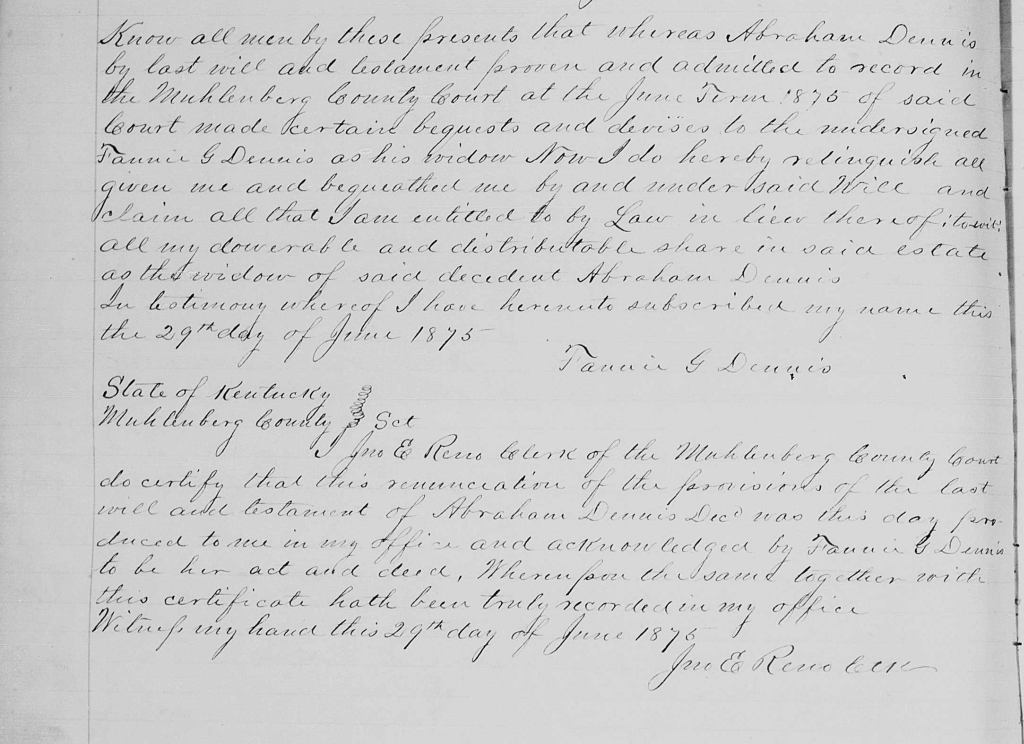 Know all men by these presents that whereas Abraham Dennis
by last will and testament proven and admitted to record in
the Muhlenberg County Court at the June Term 1875 of said
Court made certain bequests and devises to the undersigned
Fannie G Dennis as his widow Now I do hereby relinquish all
given me and bequeathed me by and under said Will and
claim all that I am entitled to by Law in lieu thereof, to-wit:
all my dowerable and distributable share in said estate
as the widow of said decedent Abraham Dennis
In testimony whereof I have hereunto subscribed my name this
the 29th day of June 1875
Fannie G Dennis
State of Kentucky
Muhlenberg County Sct
I Jno E Reno Clerk of the Muhlenberg County Court
do certify that this renunciation of the provisions of the last
will and testament of Abraham Dennis Decd was this day pro-
duced to me in my office and acknowledged by Fannie G Dennis
to be her act and deed, Whereupon the same together with
this certificate hath been truly recorded in my office
Witness my hand this 29th day of June 1875
Jno E Reno Clk